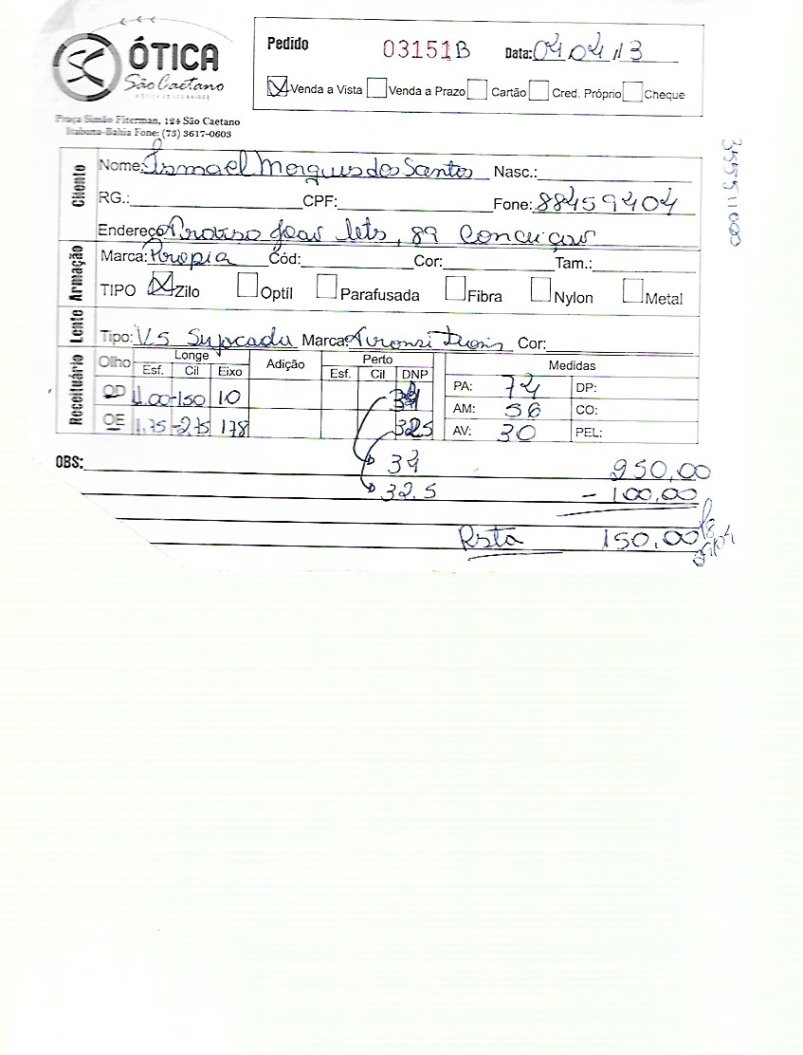 ÓTICA
São Caetano
Praça Simão Fiterman, 124 São Caetano
Itabuna-Bahia Fone: (73) 3617-0603
Pedido 03151B Data: 04 04 13
Venda a Vista Venda a Prazo Cartão Cred. Próprio Cheque
Cliente
Nome: Ismael Marques dos Santos Nasc.:
RG.: CPF: Fone: 88459404
Endereço , 89 Conceição
Armação
Marca: Própia Cód: Cor: Tam.:
TIPO Zilo Optíl Parafusada Fibra Nylon Metal
Lente
Tipo: VS Marca: Cor:
Receituário
Olho Longe Adição Perto Medidas
Esf. Cil Eixo Esf. Cil DNP
OD 1,00 -150 10 PA: 74 DP:
AM: 56 CO:
OE 1,75 -2,75 178 325 AV: 30 PEL:
OBS: 34 250,00
32.5 - 100,00
Resta 150,00
355511000